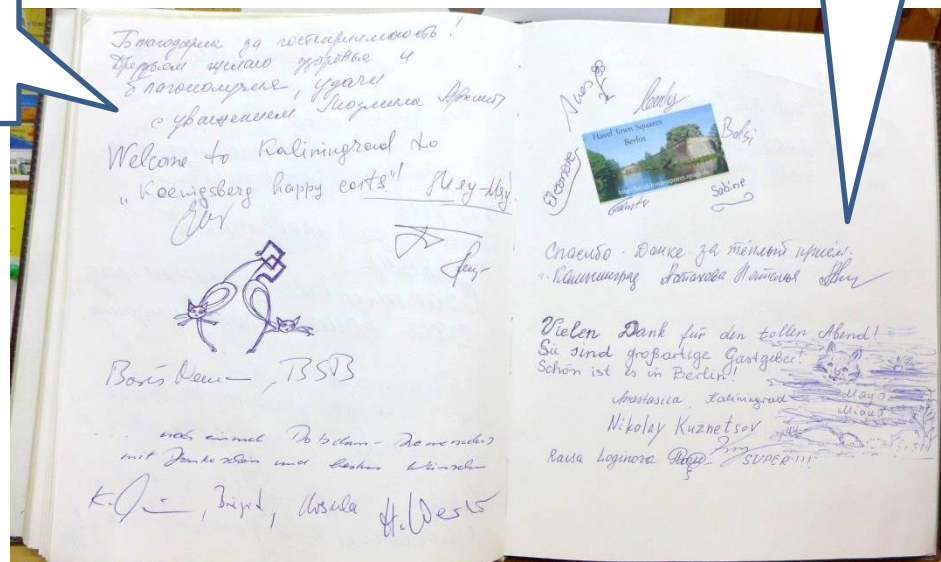 Благодарим за гостеприимность!
Друзьям желаю здоровья и
благополучия, удачи
с уважением Людмила
Welcome to Kaliningrad to
„Koenigsberg happy cats"! Мяу-Мяу!
Boris, BSB
... noch einmal Potsdam-
mit Dankeschön und besten Wünschen
Brigid, Ursula H. Werk
Havel Town Squares
Berlin
Günter
Sabine
Спасибо - Данке - за тёплый приём.
г. Калининград Наталья
Vielen Dank für den tollen Abend!
Sie sind großartige Gastgeber!
Schön ist es in Berlin!
Anastasiia, Kaliningrad
Nikolay Kuznetsov
Raisa Loginova SUPER!!!